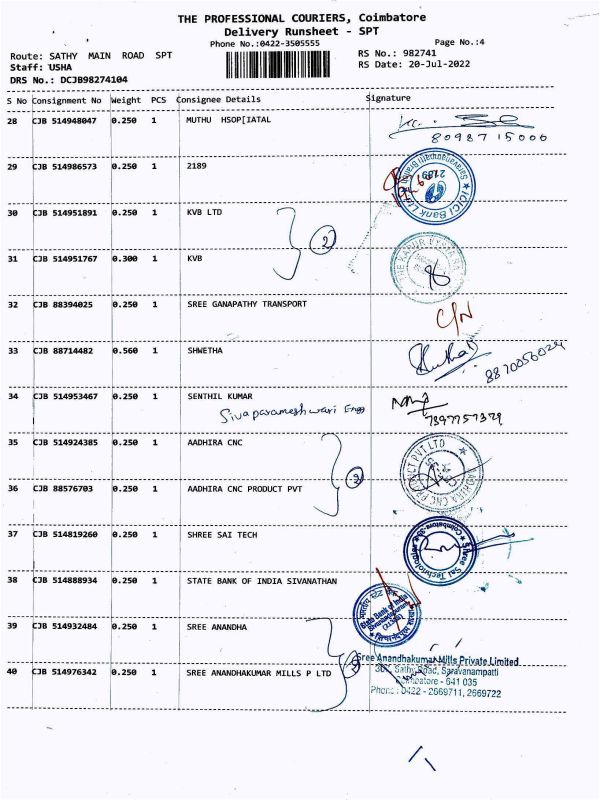 THE PROFESSIONAL COURIERS, Coimbatore
Delivery Runsheet - SPT
Phone No.:0422-3505555
Page No.:4
Route: SATHY MAIN ROAD SPT
RS No.: 982741
Staff: USHA
RS Date: 20-Jul-2022
DRS No.: DCJB98274104
S No Consignment No Weight PCS Consignee Details Signature
28 CJB 514948047 0.250 1 MUTHU HSOP[IATAL
8098715006
29 CJB 514986573 0.250 1 2189
ICICI Bank
30 CJB 514951891 0.250 1 KVB LTD
2
31 CJB 514951767 0.300 1 KVB
THE KARUR VYSYA BANK
32 CJB 88394025 0.250 1 SREE GANAPATHY TRANSPORT
C/N
33 CJB 88714482 0.560 1 SHWETHA
8870056024
34 CJB 514953467 0.250 1 SENTHIL KUMAR
Sivaparameshwari Engg
7397757329
35 CJB 514924385 0.250 1 AADHIRA CNC
2
36 CJB 88576703 0.250 1 AADHIRA CNC PRODUCT PVT
AADHIRA CNC PRODUCT PVT LTD
37 CJB 514819260 0.250 1 SHREE SAI TECH
38 CJB 514888934 0.250 1 STATE BANK OF INDIA SIVANATHAN
State Bank of India
39 CJB 514932484 0.250 1 SREE ANANDHA
40 CJB 514976342 0.250 1 SREE ANANDHAKUMAR MILLS P LTD
Sree Anandhakumar Mills Private Limited
Sathy Road, Saravanampatti
Coimbatore - 641 035
Phone : 0422 - 2669711, 2669722